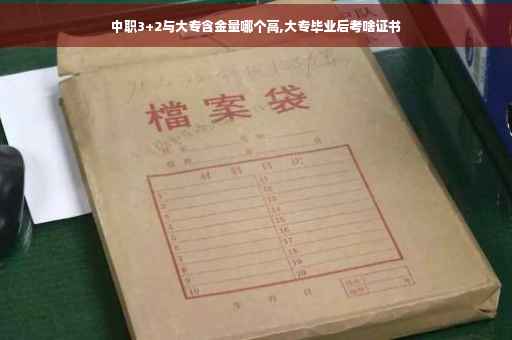 中职3+2与大专含金量哪个高,大专毕业后考啥证书
檔案袋
材料目次
1 11
2 12
3 13
4 14
5 15
6 16
7 17
8 18
9 19
10 20
年 月 日